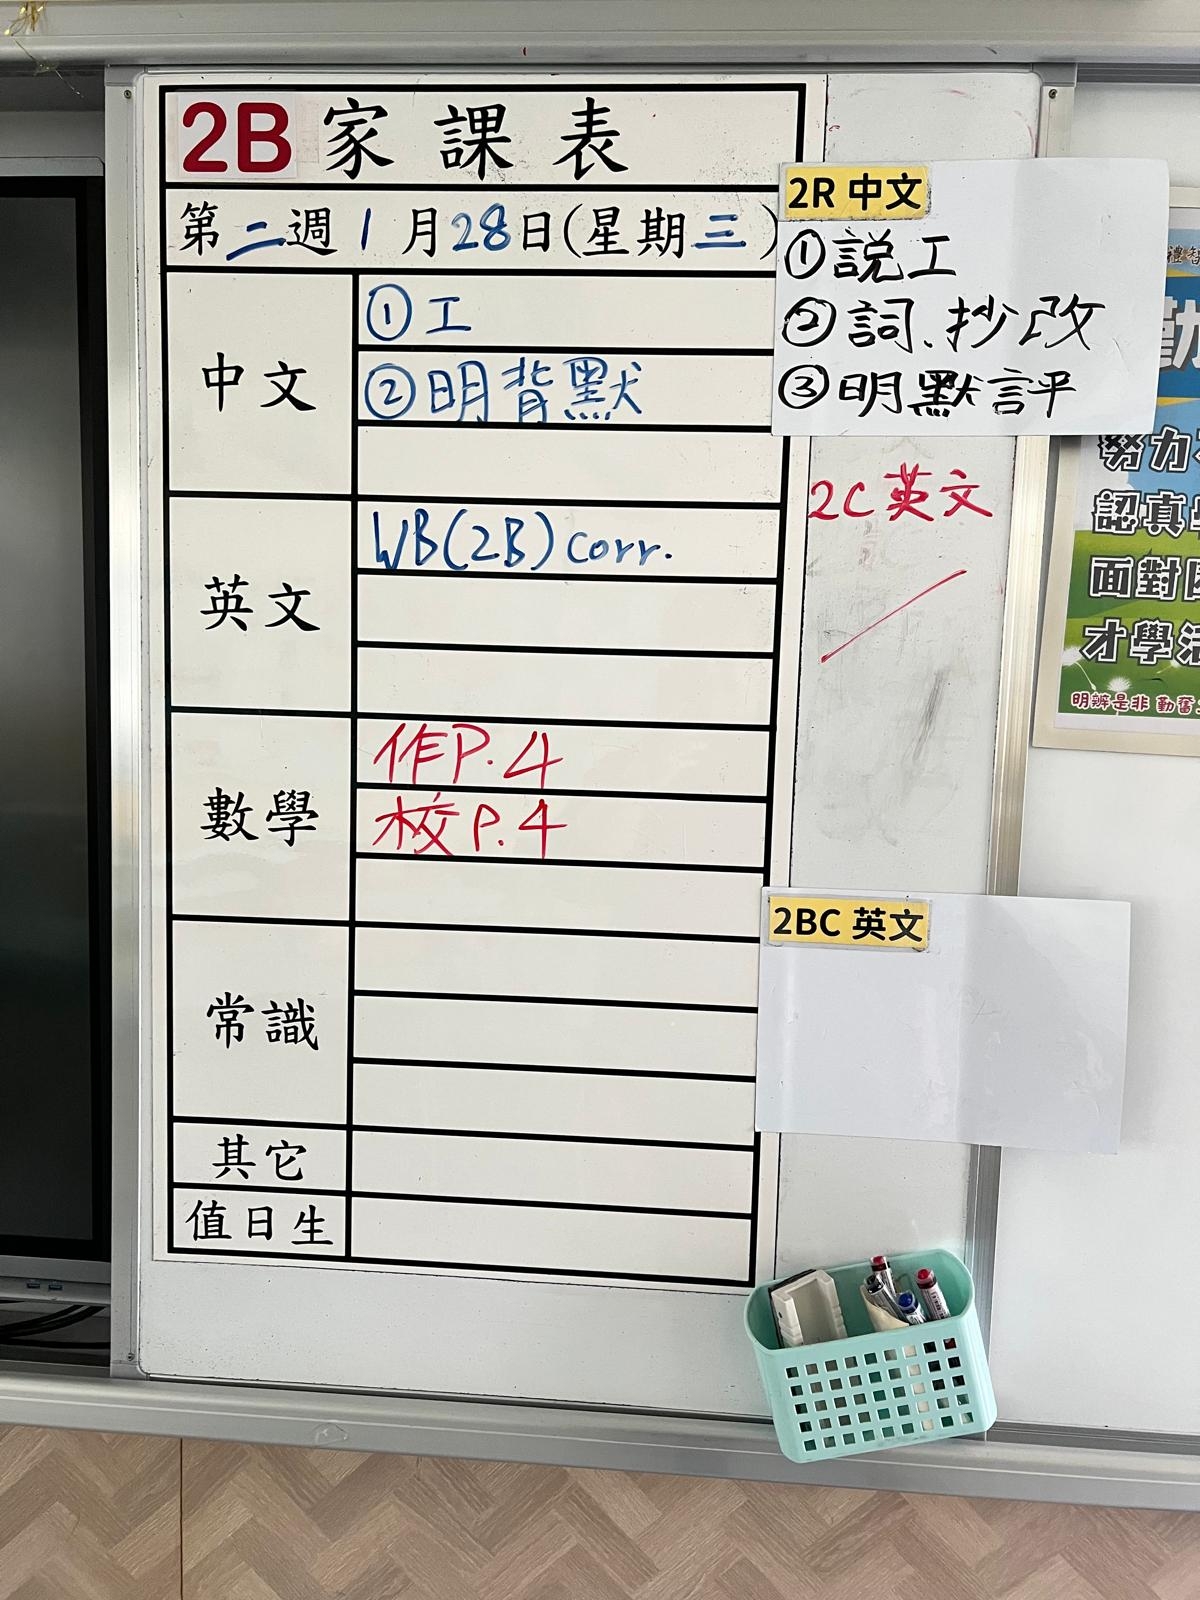 2B 家課表
第二週1月28日(星期三)
中文
①工
②明背默
英文
WB(2B) corr.
數學
作P.4
校P.4
常識
其它
值日生
2R 中文
①説工
②詞、抄改
③明默評
2C英文
2BC 英文
努力
認真
面對
才學
明辨是非 勤奮